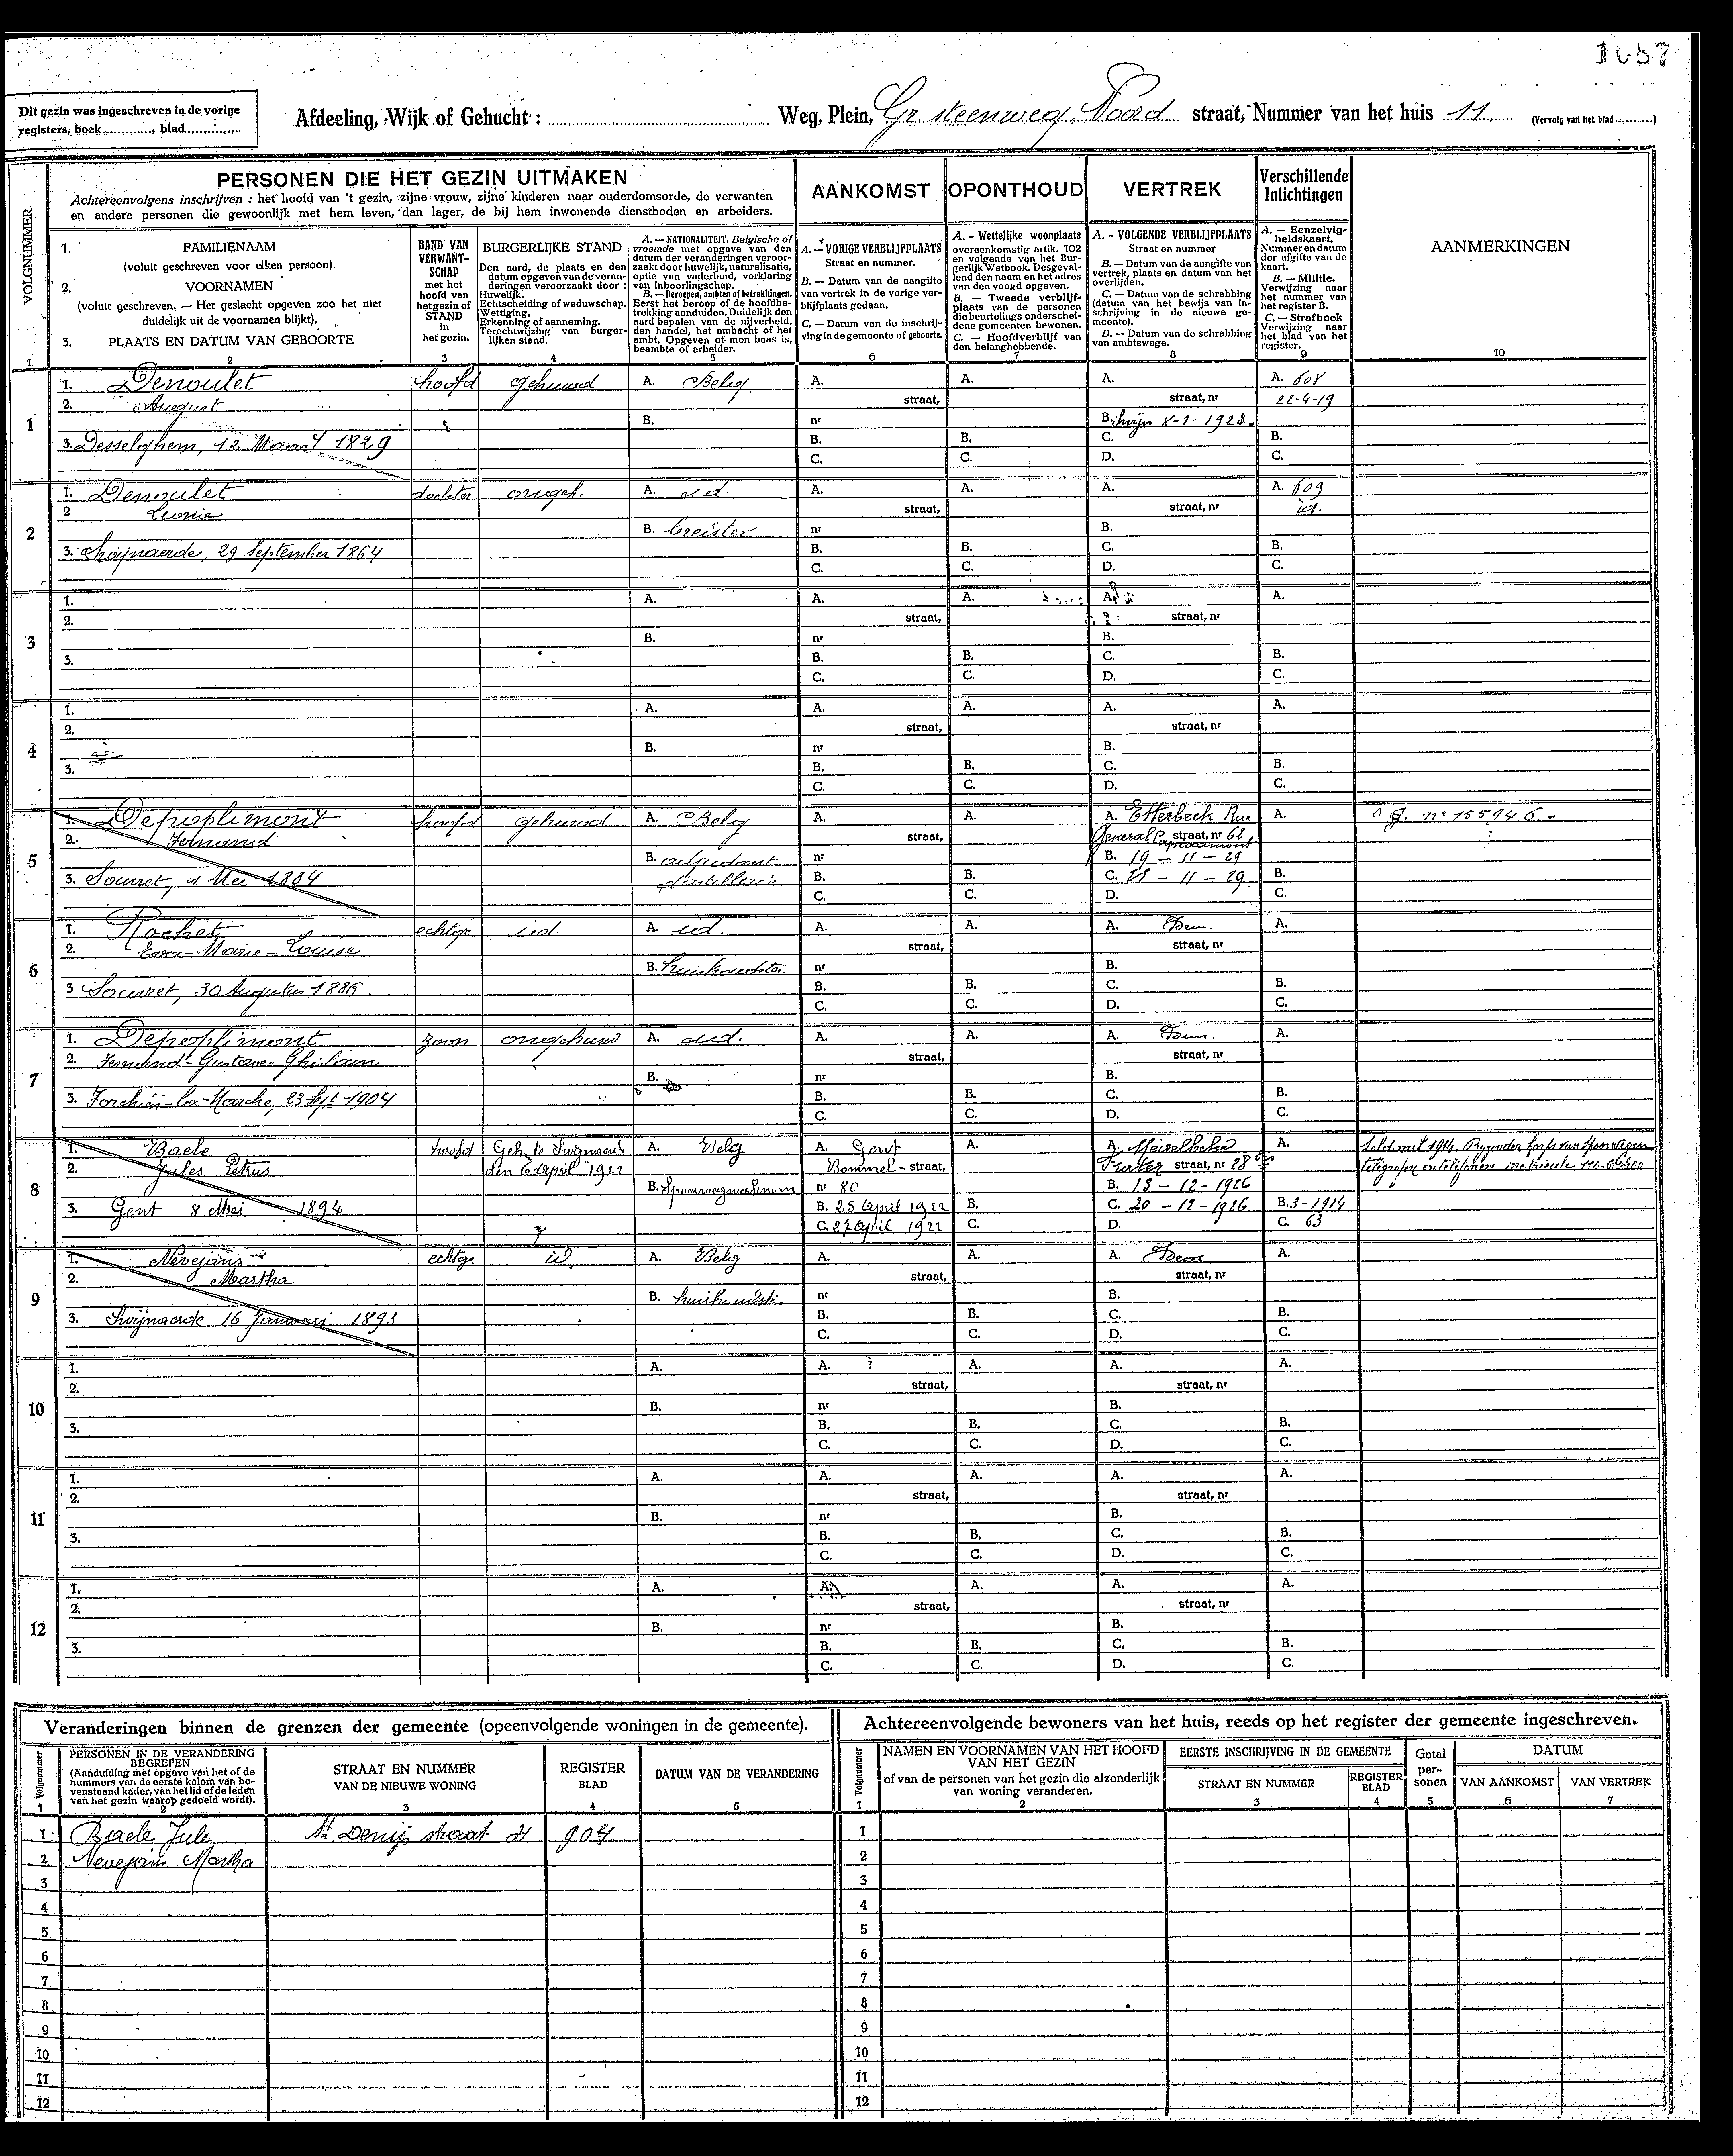 1087
Dit gezin was ingeschreven in de vorige
registers, boek............, blad..............
Afdeeling, Wijk of Gehucht : ........ Weg, Plein, Gr. steenweg. Noord straat, Nummer van het huis 11 (Vervolg van het blad ..........)
PERSONEN DIE HET GEZIN UITMAKEN
Achtereenvolgens inschrijven : het hoofd van 't gezin, zijne vrouw, zijne kinderen naar ouderdomsorde, de verwanten
en andere personen die gewoonlijk met hem leven, dan lager, de bij hem inwonende dienstboden en arbeiders.
AANKOMST
OPONTHOUD
VERTREK
Verschillende
Inlichtingen
VOLGNUMMER
1
1. FAMILIENAAM
(voluit geschreven voor elken persoon).
2. VOORNAMEN
(voluit geschreven. — Het geslacht opgeven zoo het niet
duidelijk uit de voornamen blijkt).
3. PLAATS EN DATUM VAN GEBOORTE
2
BAND VAN
VERWANT-
SCHAP
met het
hoofd van
het gezin of
STAND
in
het gezin.
3
BURGERLIJKE STAND
Den aard, de plaats en den
datum opgeven van de veran-
deringen veroorzaakt door :
Huwelijk.
Echtscheiding of weduwschap.
Wettiging.
Erkenning of aanneming.
Terechtwijzing van burger-
lijken stand.
4
A. — NATIONALITEIT. Belgische of
vreemde met opgave van den
datum der veranderingen veroor-
zaakt door huwelijk, naturalisatie,
optie van vaderland, verklaring
van inboorlingschap.
B. — Beroepen, ambten of betrekkingen.
Eerst het beroep of de hoofdbe-
trekking aanduiden. Duidelijk den
aard bepalen van de nijverheid,
den handel, het ambacht of het
ambt. Opgeven of men baas is,
beambte of arbeider.
5
A. — VORIGE VERBLIJFPLAATS
Straat en nummer.
B. — Datum van de aangifte
van vertrek in de vorige ver-
blijfplaats gedaan.
C. — Datum van de inschrij-
ving in de gemeente of geboorte.
6
A. - Wettelijke woonplaats
overeenkomstig artik. 102
en volgende van het Bur-
gerlijk Wetboek. Desgeval-
lend den naam en het adres
van den voogd opgeven.
B. — Tweede verblijf-
plaats van de personen
die beurtelings onderschei-
dene gemeenten bewonen.
C. — Hoofdverblijf van
den belanghebbende.
7
A. - VOLGENDE VERBLIJFPLAATS
Straat en nummer
B. — Datum van de aangifte van
vertrek, plaats en datum van het
overlijden.
C. — Datum van de schrabbing
(datum van het bewijs van in-
schrijving in de nieuwe ge-
meente).
D. — Datum van de schrabbing
van ambtswege.
8
A. — Eenzelvig-
heidskaart.
Nummer en datum
der afgifte van de
kaart.
B. — Militie.
Verwijzing naar
het nummer van
het register B.
C. — Strafboek
Verwijzing naar
het blad van het
register.
9
AANMERKINGEN
10
1
1. Denoulet hoofd gehuwd A. Belg A. A. A. A. 608
2. August straat, straat, nr 22-4-19
B. nr B. Swijn 8-1-1923.
3. Desselghem, 12 Maart 1829 B. B. C. B.
C. C. D. C.
2
1. Denoulet dochter ongeh. A. id. A. A. A. A. 609
2 Leonie straat, straat, nr id.
B. nr B.
3. Swijnaerde, 29 September 1864 B. B. C. B.
C. C. D. C.
3
1. A. A. A. A. A.
2. straat, straat, nr
B. nr B.
3. B. B. C. B.
C. C. D. C.
4
1. A. A. A. A. A.
2. straat, straat, nr
B. nr B.
3. B. B. C. B.
C. C. D. C.
5
1. Depoplimont hoofd gehuwd A. Belg A. A. A. Etterbeek Rue A. nr 155946.-
2. Fernand straat, General straat, nr 62
B. adjudant nr B. 19 — 11 — 29
3. Souvret, 1 Mei 1884 d'artillerie B. B. C. 21 — 11 — 29 B.
C. C. D. C.
6
1. Rochet echtge id. A. id. A. A. A. Idem. A.
2. Eva-Marie-Louise straat, straat, nr
B. huishoudster nr B.
3 Souvret, 30 Augustus 1886. B. B. C. B.
C. C. D. C.
7
1. Depoplimont zoon ongehuwd A. id. A. A. A. Idem. A.
2. Fernand-Gustave-Ghislain straat, straat, nr
B. nr B.
3. Forchies-la-Marche, 23 Sept 1904 B. B. C. B.
C. C. D. C.
8
1. Baele hoofd Geh. te Swijnaerde A. Belg A. Gent A. A. Meirelbeke A. Sold. mil 1914. Bijzonder Korps van Spoorwegen
2. Jules Petrus den 6 April 1922 Bommel - straat, straat, nr 28 telegrafen en telefonen matricule 110-64400
B. Spoorwegwerkman nr 80 B. 13 - 12 - 1926
3. Gent 8 Mei 1894 B. 25 April 1922 B. C. 20 - 12 - 1926 B. 3-1914
C. 27 April 1922 C. D. C. 63
9
1. Nevejans echtge. id. A. Belg A. A. A. Idem A.
2. Martha straat, straat, nr
B. huishoudster nr B.
3. Swijnaerde 16 Januari 1893 B. B. C. B.
C. C. D. C.
10
1. A. A. A. A. A.
2. straat, straat, nr
B. nr B.
3. B. B. C. B.
C. C. D. C.
11
1. A. A. A. A. A.
2. straat, straat, nr
B. nr B.
3. B. B. C. B.
C. C. D. C.
12
1. A. A. A. A. A.
2. straat, straat, nr
B. nr B.
3. B. B. C. B.
C. C. D. C.
Veranderingen binnen de grenzen der gemeente (opeenvolgende woningen in de gemeente).
Volgnummer
1
PERSONEN IN DE VERANDERING
BEGREPEN
(Aanduiding met opgave van het of de
nummers van de eerste kolom van bo-
venstaand kader, van het lid of de leden
van het gezin waarop gedoeld wordt).
2
STRAAT EN NUMMER
VAN DE NIEUWE WONING
3
REGISTER
BLAD
4
DATUM VAN DE VERANDERING
5
1 Baele Jule St Denijs straat 904
2 Nevejans Martha
3
4
5
6
7
8
9
10
11
12
Achtereenvolgende bewoners van het huis, reeds op het register der gemeente ingeschreven.
Volgnummer
1
NAMEN EN VOORNAMEN VAN HET HOOFD
VAN HET GEZIN
of van de personen van het gezin die afzonderlijk
van woning veranderen.
2
EERSTE INSCHRIJVING IN DE GEMEENTE
STRAAT EN NUMMER
3
REGISTER
BLAD
4
Getal
per-
sonen
5
DATUM
VAN AANKOMST
6
VAN VERTREK
7
1
2
3
4
5
6
7
8
9
10
11
12